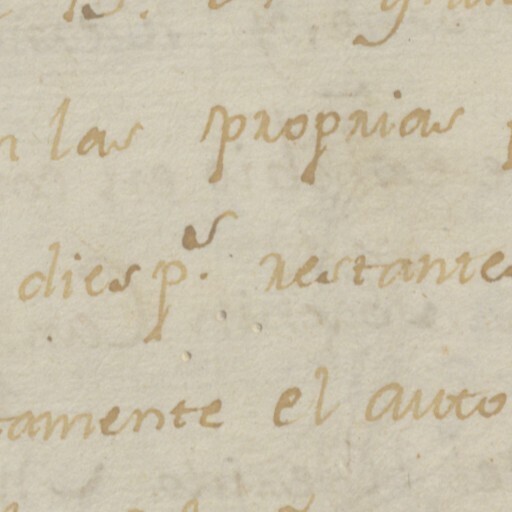 las proprias
dies p.s restante
tamente el auto